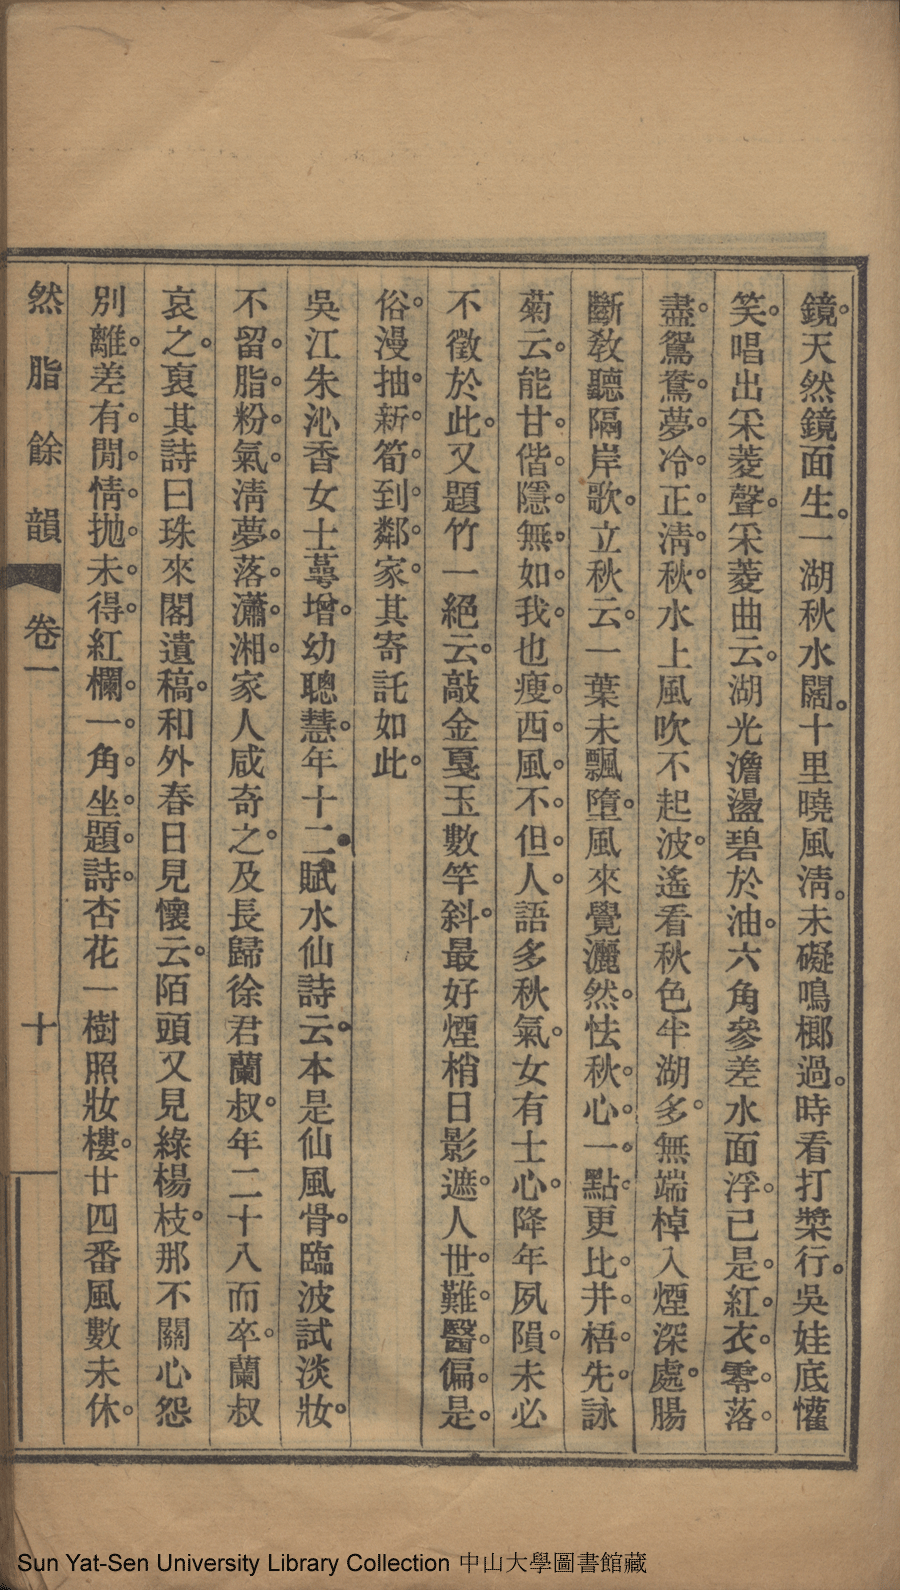 鏡天然鏡面生一湖秋水闊十里曉風淸未礙鳴榔過時看打槳行吳娃底懽
笑唱出采菱聲采菱曲云湖光澹盪碧於油六角參差水面浮已是紅衣零落
盡鴛鴦夢冷正淸秋水上風吹不起波遙看秋色半湖多無端棹入煙深處腸
斷敎聽隔岸歌立秋云一葉未飄墮風來覺灑然怯秋心一點更比井梧先詠
菊云能甘偕隱無如我也瘦西風不但人語多秋氣女有士心降年夙隕未必
不徵於此又題竹一絕云敲金戛玉數竿斜最好煙梢日影遮人世難醫偏是
俗漫抽新筍到鄰家其寄託如此
吳江朱沁香女士蕚增幼聰慧年十二賦水仙詩云本是仙風骨臨波試淡妝
不留脂粉氣淸夢落瀟湘家人咸奇之及長歸徐君蘭叔年二十八而卒蘭叔
哀之裒其詩曰珠來閣遺稿和外春日見懷云陌頭又見綠楊枝那不關心怨
別離差有閒情拋未得紅欄一角坐題詩杏花一樹照妝樓廿四番風數未休
然脂餘韻 卷一 十
Sun Yat-Sen University Library Collection 中山大學圖書館藏